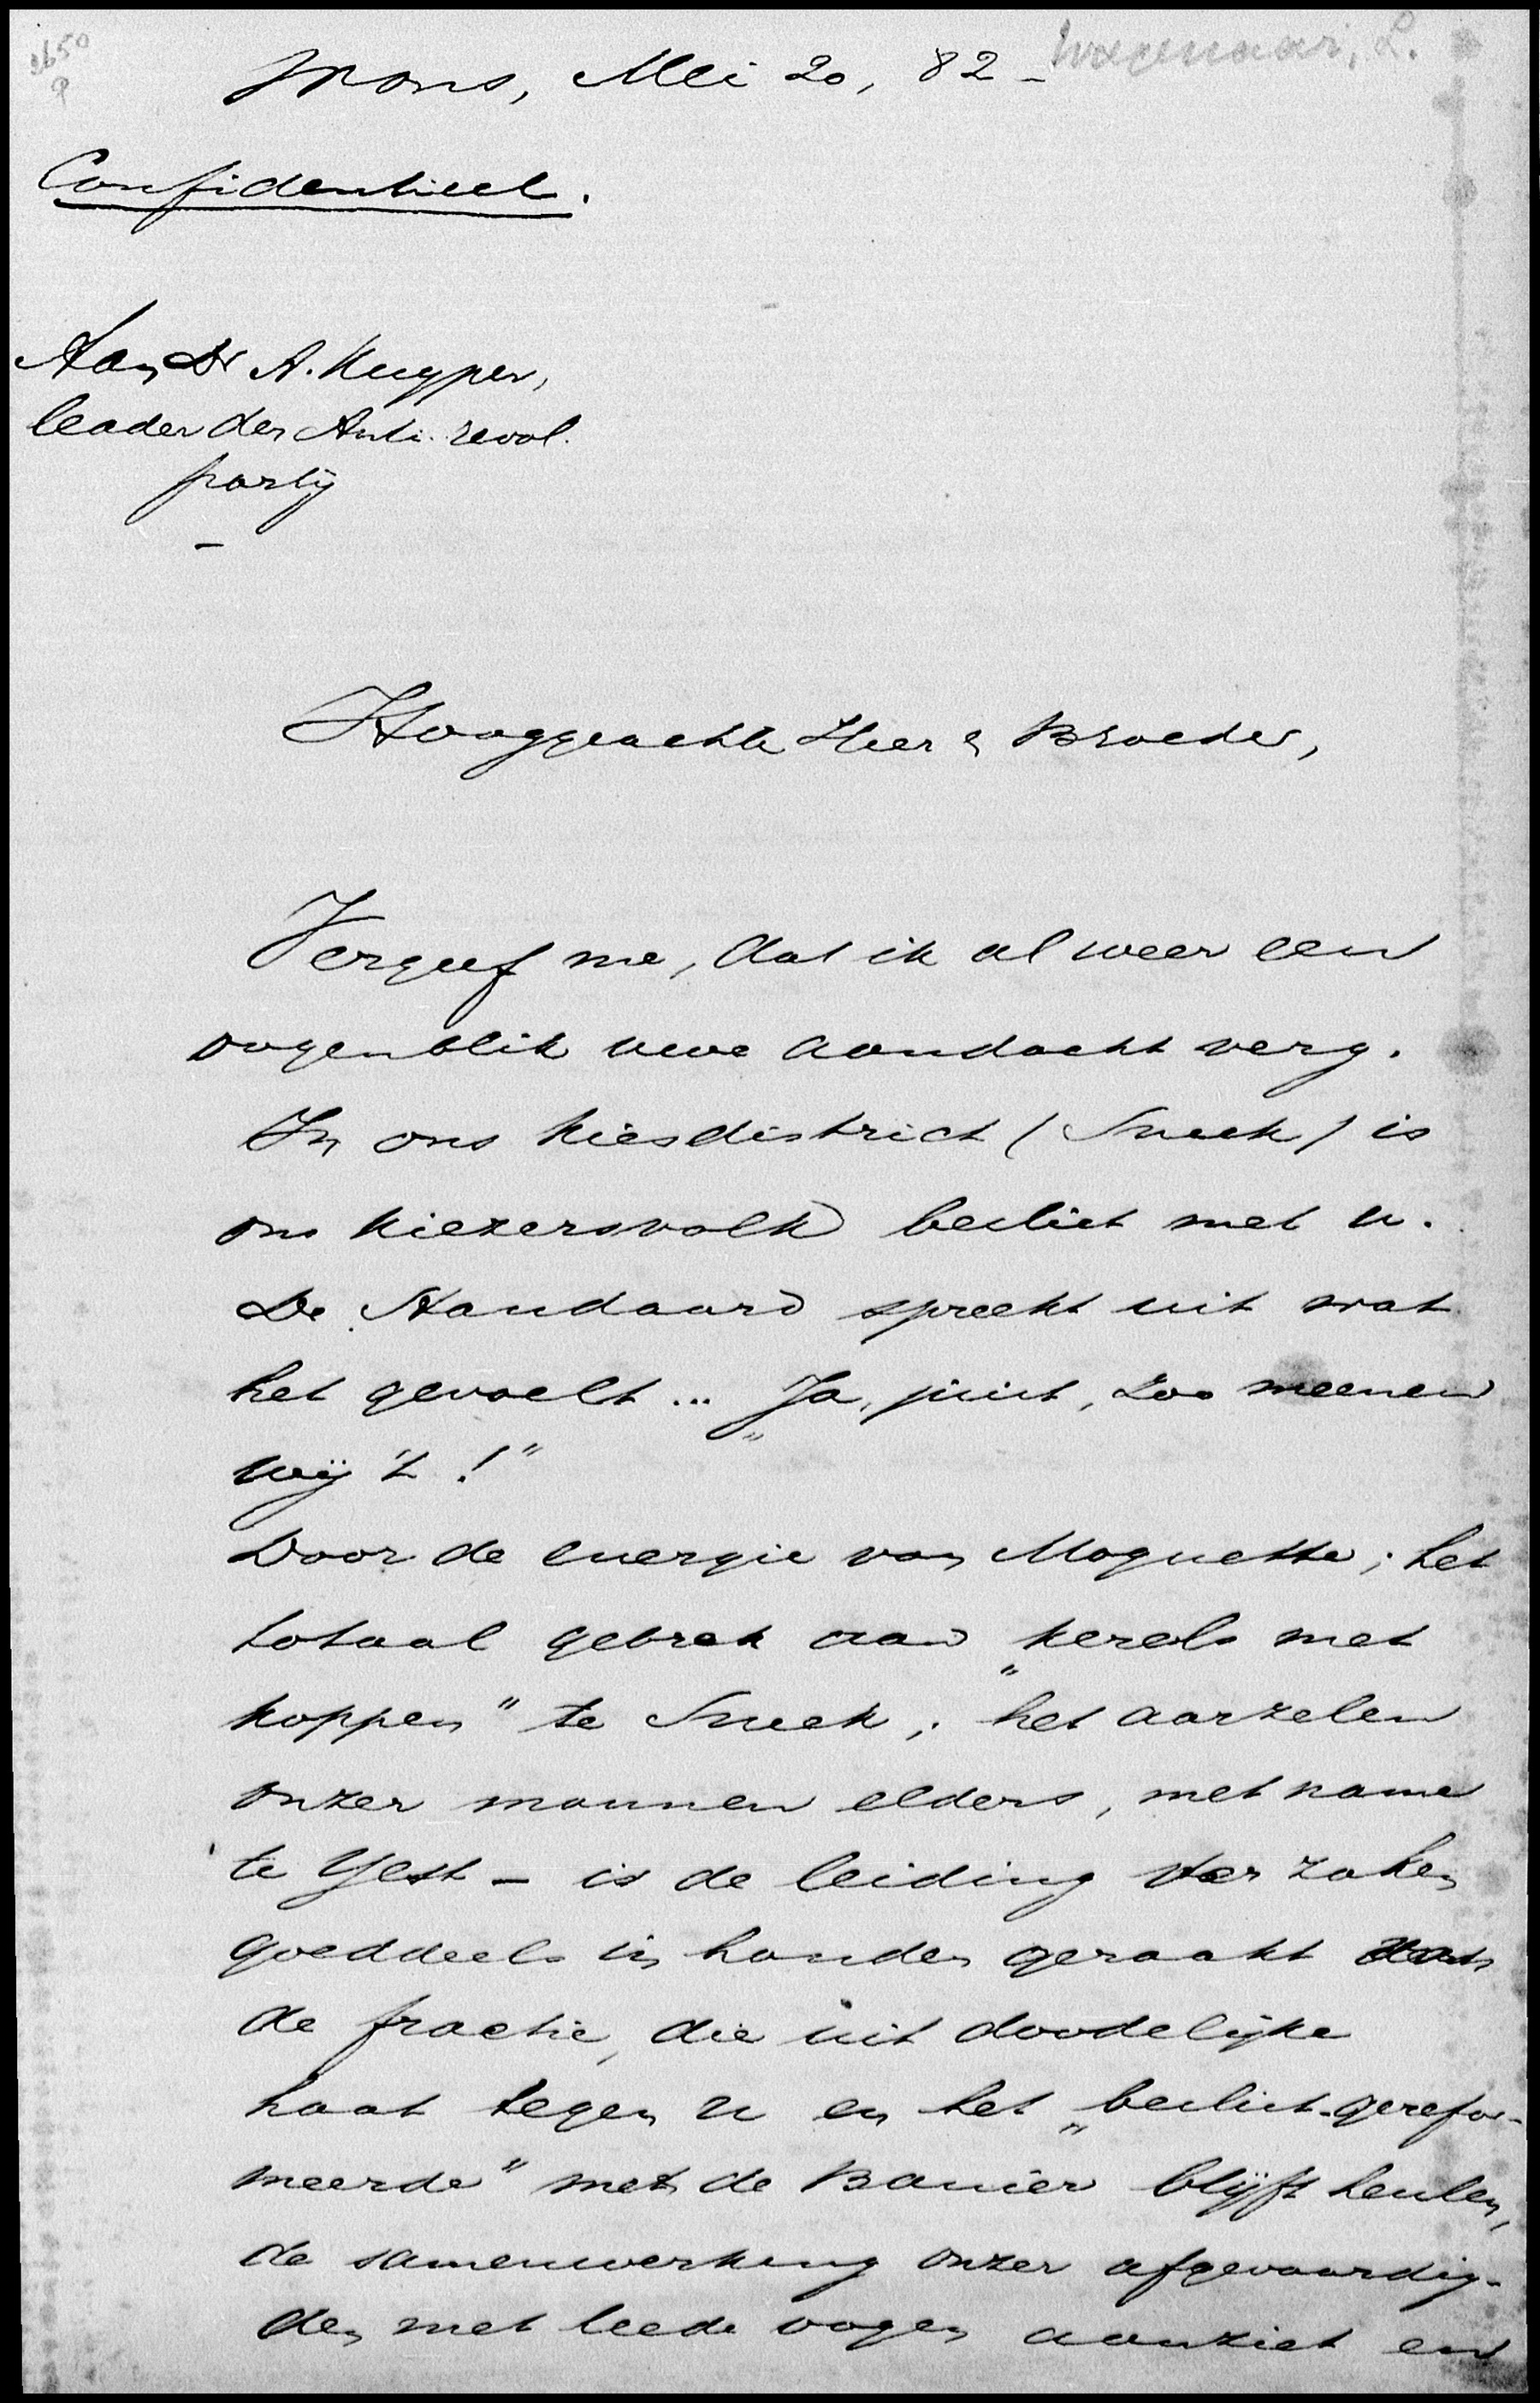 Wons, Mei 20, 82 - Wagenaar, L.
Confidentieel.
Aan Dr A. Kuyper,
leader der Anti-revol.
partij
-
Hooggeachte Heer & Broeder,
Vergeef me, dat ik al weer een
oogenblik uwe aandacht verg.
In ons kiesdistrict (Sneek) is
ons kiezersvolk beslist met u.
De Standaard spreekt uit wat
het gevoelt... „Ja, juist, zoo meenen
wij 't!”
Door de energie van Moquette; het
totaal gebrek aan „kerels met
koppen” te Sneek; het aarzelen
onzer mannen elders, met name
te Ylst - is de leiding der zaken
goeddeels in handen geraakt van
de fractie, die uit doodelijke
haat tegen u en het „beslist-gerefor-
meerde” met de Banier blijft heulen,
de samenwerking onzer afgevaardig-
den met leede oogen aanziet en